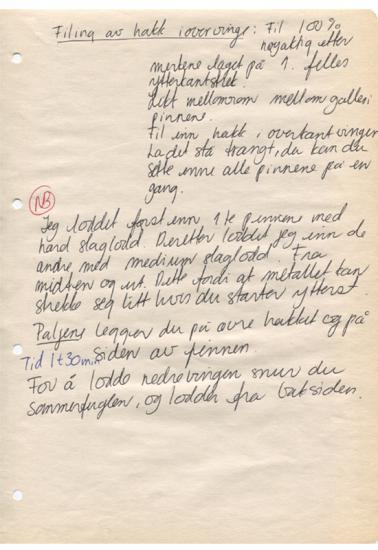 Filing av hakk i overvinge: Fil 100%
nøyaktig etter
merkene laget på 1. felles
ytterkantstrek.
Likt mellomrom mellom galleri
pinnene.
Fil inn hakk i overkant vingen
La det stå trangt, da kan du
sette inne alle pinnene på en
gang.
NB
Jeg loddet først inn 1te pinnene med
hard slaglodd. Deretter loddet jeg inn de
andre med medium slaglodd. Fra
midten og ut. Dette fordi at metallet kan
strekke seg litt hvis du starter ytterst
Paljene legger du på øvre hakket og på
siden av pinnen.
Tid 1t30min
For å lodde nedre vingen snur du
sommerfuglen, og lodder fra baksiden.